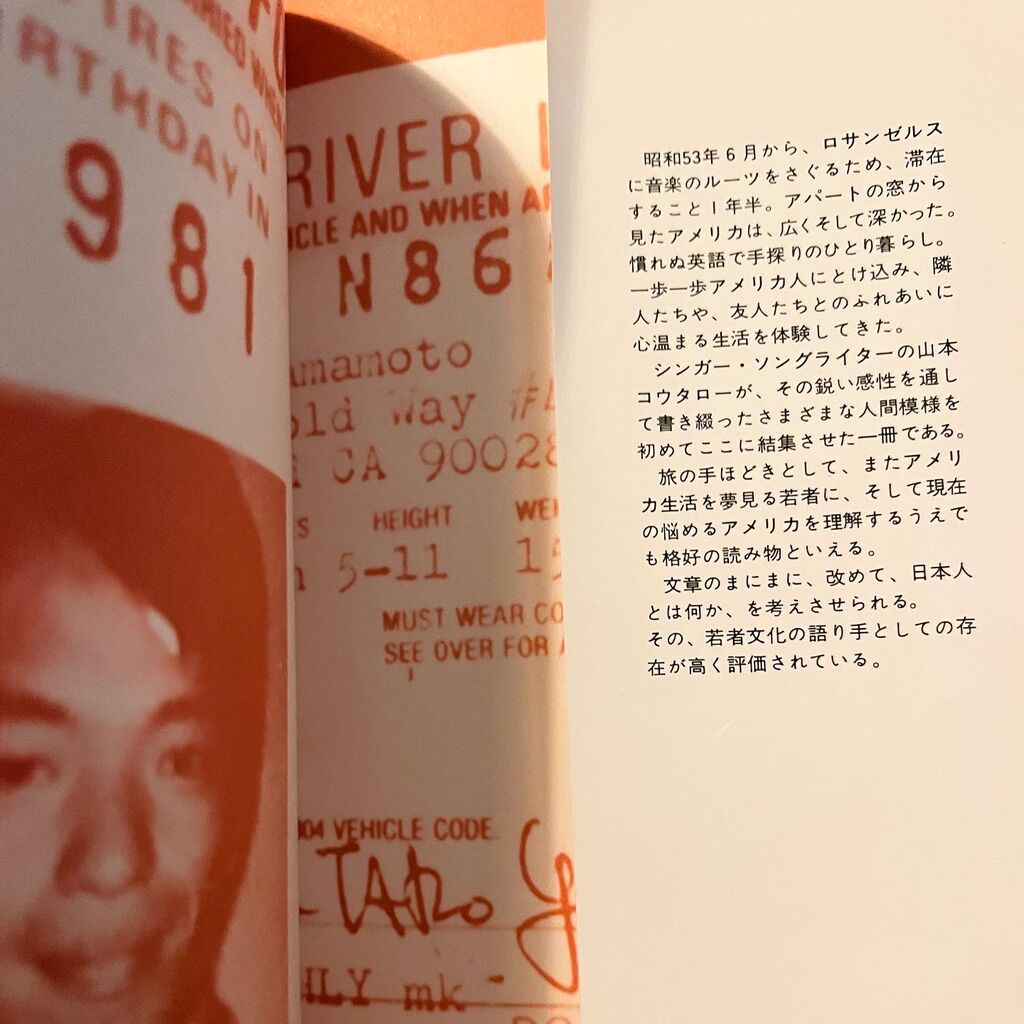 EXPIRES ON
BIRTHDAY IN
981
RIVER
ICLE AND WHEN
N86
amamoto
old Way #
CA 90028
HEIGHT
5-11
MUST WEAR
SEE OVER FOR
VEHICLE CODE
TARO
昭和53年6月から、ロサンゼルス
に音楽のルーツをさぐるため、滞在
すること1年半。アパートの窓から
見たアメリカは、広くそして深かった。
慣れぬ英語で手探りのひとり暮らし。
一歩一歩アメリカ人にとけ込み、隣
人たちや、友人たちとのふれあいに
心温まる生活を体験してきた。
シンガー・ソングライターの山本
コウタローが、その鋭い感性を通し
て書き綴ったさまざまな人間模様を
初めてここに結集させた一冊である。
旅の手ほどきとして、またアメリ
カ生活を夢見る若者に、そして現在
の悩めるアメリカを理解するうえで
も格好の読み物といえる。
文章のまにまに、改めて、日本人
とは何か、を考えさせられる。
その、若者文化の語り手としての存
在が高く評価されている。